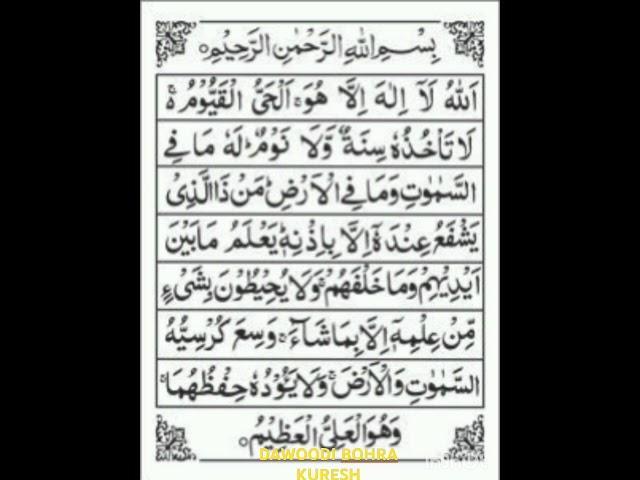 بِسْمِ اللهِ الرَّحْمٰنِ الرَّحِيْمِ ○
اَللهُ لَآ اِلٰهَ اِلَّا هُوَ ۚ اَلْحَيُّ الْقَيُّوْمُ ۚ ە
لَا تَاْخُذُهٗ سِنَةٌ وَّلَا نَوْمٌ ؕ لَهٗ مَا فِي
السَّمٰوٰتِ وَمَا فِي الْاَرْضِ ؕ مَنْ ذَا الَّذِيْ
يَشْفَعُ عِنْدَهٗٓ اِلَّا بِاِذْنِهٖ ؕ يَعْلَمُ مَا بَيْنَ
اَيْدِيْهِمْ وَمَا خَلْفَهُمْ ۚ وَلَا يُحِيْطُوْنَ بِشَيْءٍ
مِّنْ عِلْمِهٖٓ اِلَّا بِمَا شَآءَ ۚ وَسِعَ كُرْسِيُّهُ
السَّمٰوٰتِ وَالْاَرْضَ ۚ وَلَا يَـُٔوْدُهٗ حِفْظُهُمَا ۚ
وَهُوَ الْعَلِيُّ الْعَظِيْمُ ○
DAWOODI BOHRA
KURESH